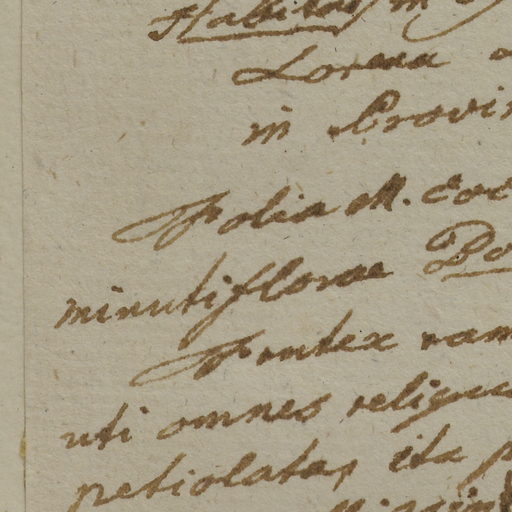 Habitat in
Lorena
in Provin
Folia M. coc
minutiflorae Bo
Frutex ram
uti omnes reliqu
petiolata, ita p